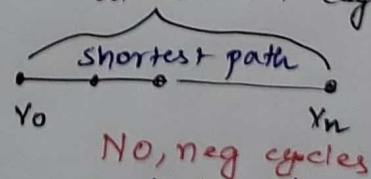 shortest path
V₀ Vₙ
No, neg cycles